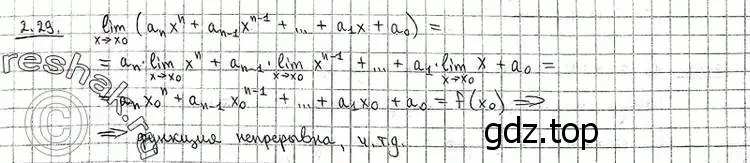 2.29. lim x→x₀ (aₙxⁿ + aₙ₋₁xⁿ⁻¹ + ... + a₁x + a₀) =
= aₙ·lim x→x₀ xⁿ + aₙ₋₁·lim x→x₀ xⁿ⁻¹ + ... + a₁·lim x→x₀ x + a₀ =
= aₙx₀ⁿ + aₙ₋₁x₀ⁿ⁻¹ + ... + a₁x₀ + a₀ = f(x₀) ⇒
⇒ функция непрерывна, ч.т.д.
reshak.ru
gdz.top